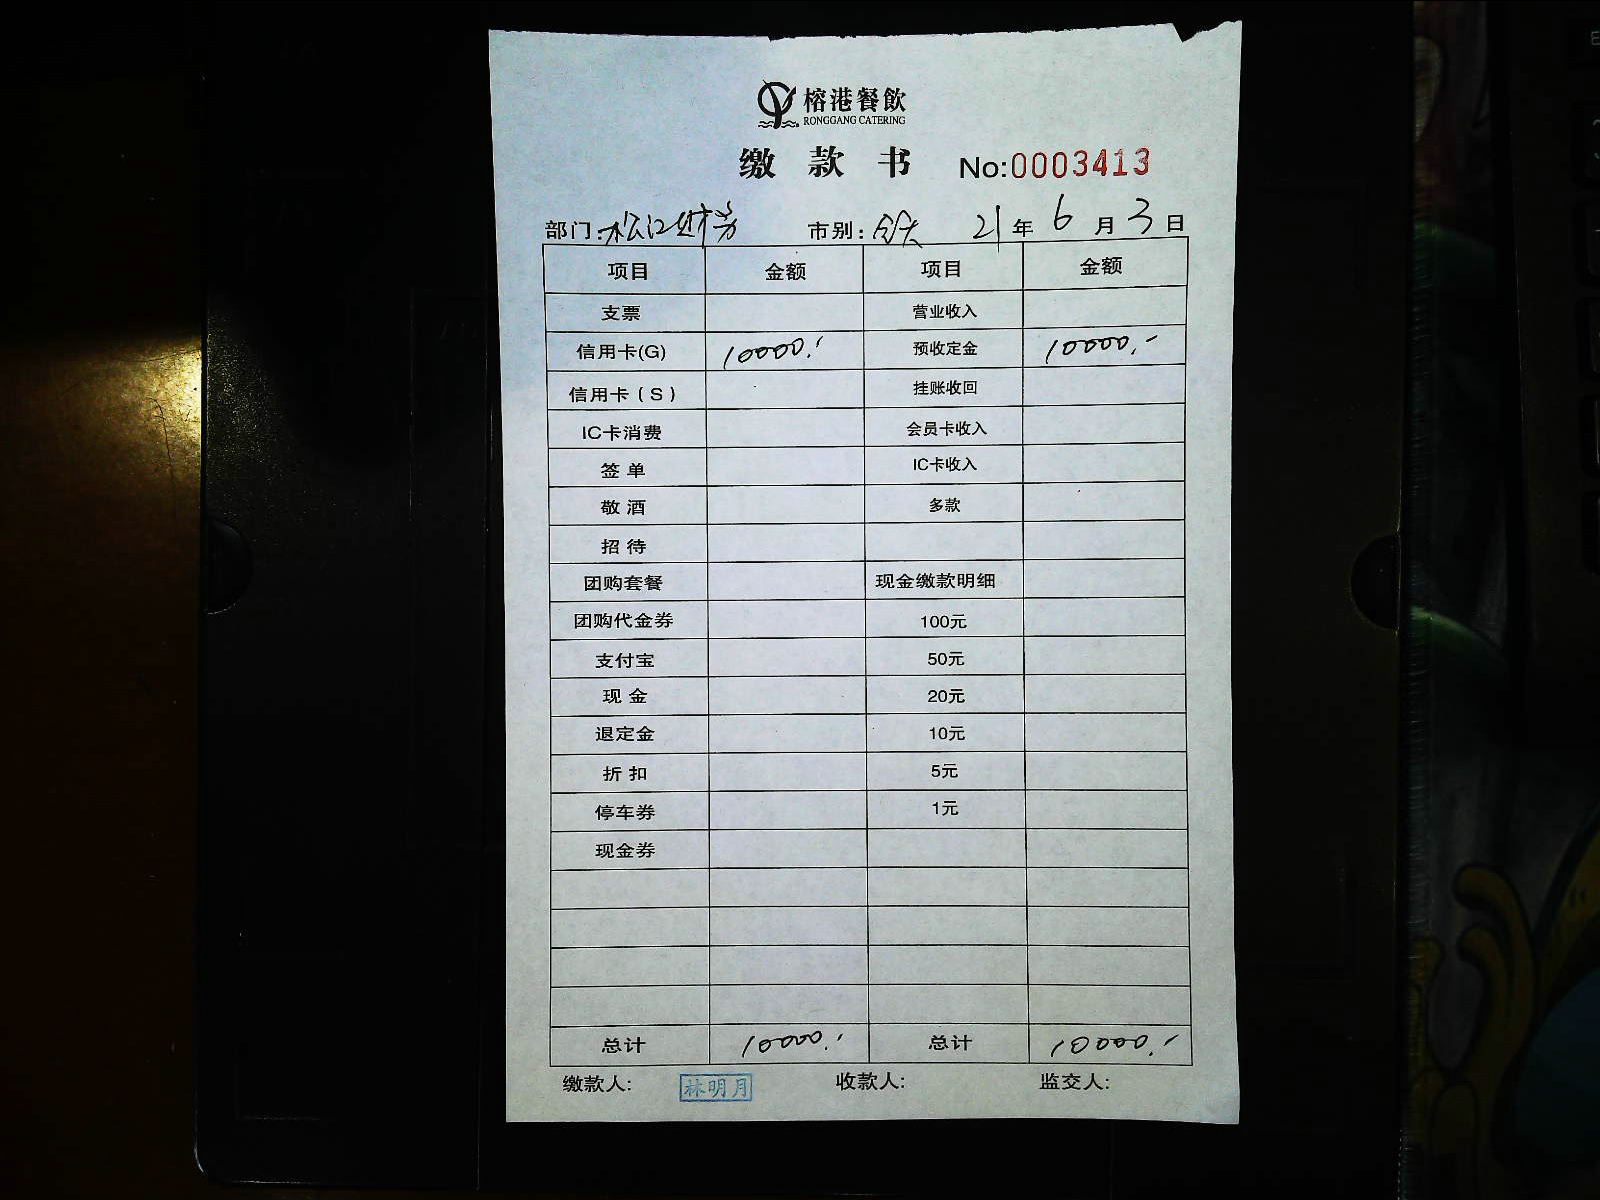 榕港餐飲
RONGGANG CATERING
缴款书 No:0003413
部门:松江财务 市别: 21年6月3日
项目 金额 项目 金额
支票 营业收入
信用卡(G) 10000.- 预收定金 10000.-
信用卡(S) 挂账收回
IC卡消费 会员卡收入
签单 IC卡收入
敬酒 多款
招待
团购套餐 现金缴款明细
团购代金券 100元
支付宝 50元
现金 20元
退定金 10元
折扣 5元
停车券 1元
现金券
总计 10000.- 总计 10000.-
缴款人: 林明月 收款人: 监交人: